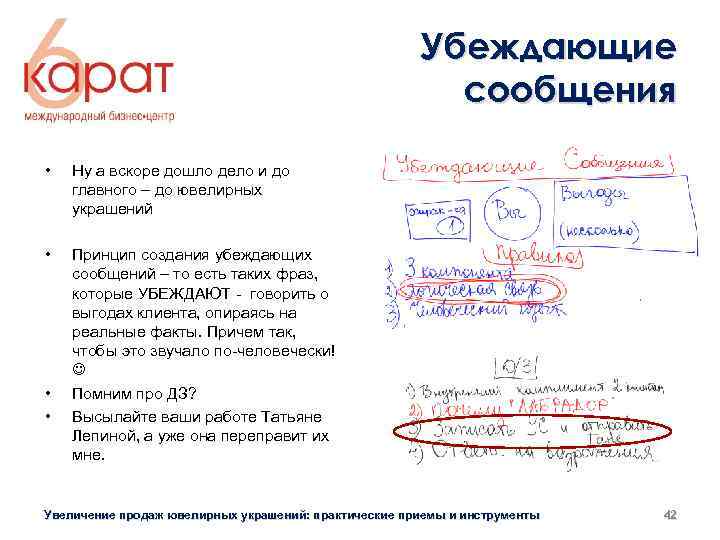 6 карат
международный бизнес•центр
Убеждающие
сообщения
• Ну а вскоре дошло дело и до
главного – до ювелирных
украшений
• Принцип создания убеждающих
сообщений – то есть таких фраз,
которые УБЕЖДАЮТ - говорить о
выгодах клиента, опираясь на
реальные факты. Причем так,
чтобы это звучало по-человечески!
☺
• Помним про ДЗ?
• Высылайте ваши работе Татьяне
Лепиной, а уже она переправит их
мне.
Убеждающие Сообщения
1
Вы
Выгода
(несколько)
Правила
1) 3 компонента
2) Логическая связь
3) Человеческий
D/З
1) Внутренний комплимент 2
2) "ЛАБРАДОР"
3) Записать УС и отправить
Тане
4) Ответ на возражения
Увеличение продаж ювелирных украшений: практические приемы и инструменты
42